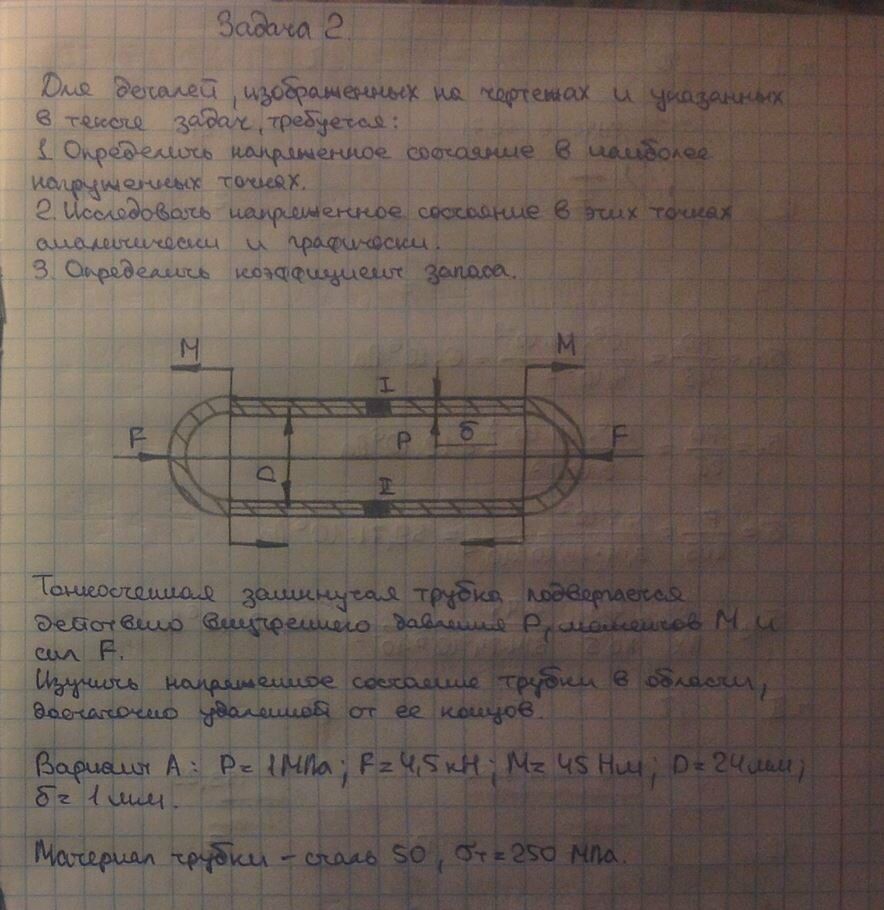 Задача 2.
Для деталей, изображенных на чертежах и указанных
в тексте задач, требуется:
1. Определить напряженное состояние в наиболее
нагруженных точках.
2. Исследовать напряженное состояние в этих точках
аналитически и графически.
3. Определить коэффициент запаса.
M M
I
F P δ F
D
II
Тонкостенная замкнутая трубка подвергается
действию внутреннего давления P, моментов M и
сил F.
Изучить напряженное состояние трубки в области,
достаточно удаленной от ее концов.
Вариант А: P = 1 МПа; F = 4,5 кН; M = 45 Нм; D = 24 мм;
δ = 1 мм.
Материал трубки - сталь 50, σт = 250 МПа.